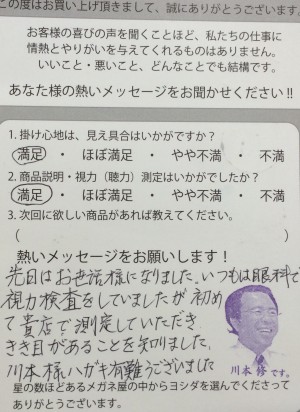 この度はお買い上げ頂きまして、誠にありがとうございます。
お客様の喜びの声を聞くことほど、私たちの仕事に
情熱とやりがいを与えてくれるものはありません。
いいこと・悪いこと、どんなことでも結構です。
あなた様の熱いメッセージをお聞かせください!!
1. 掛け心地は、見え具合はいかがですか?
満足 ・ ほぼ満足 ・ やや不満 ・ 不満
2. 商品説明・視力(聴力)測定はいかがでしたか?
満足 ・ ほぼ満足 ・ やや不満 ・ 不満
3. 次回に欲しい商品があれば教えてください。
(
熱いメッセージをお願いします!
先日はお世話様になりました、いつもは眼科で
視力検査をしていましたが初め
て貴店で測定していただき
きき目があることを知りました、
川本様ハガキ有難うございました
川本 修です。
星の数ほどあるメガネ屋の中からヨシダを選んでくださって
ありがとうございます。